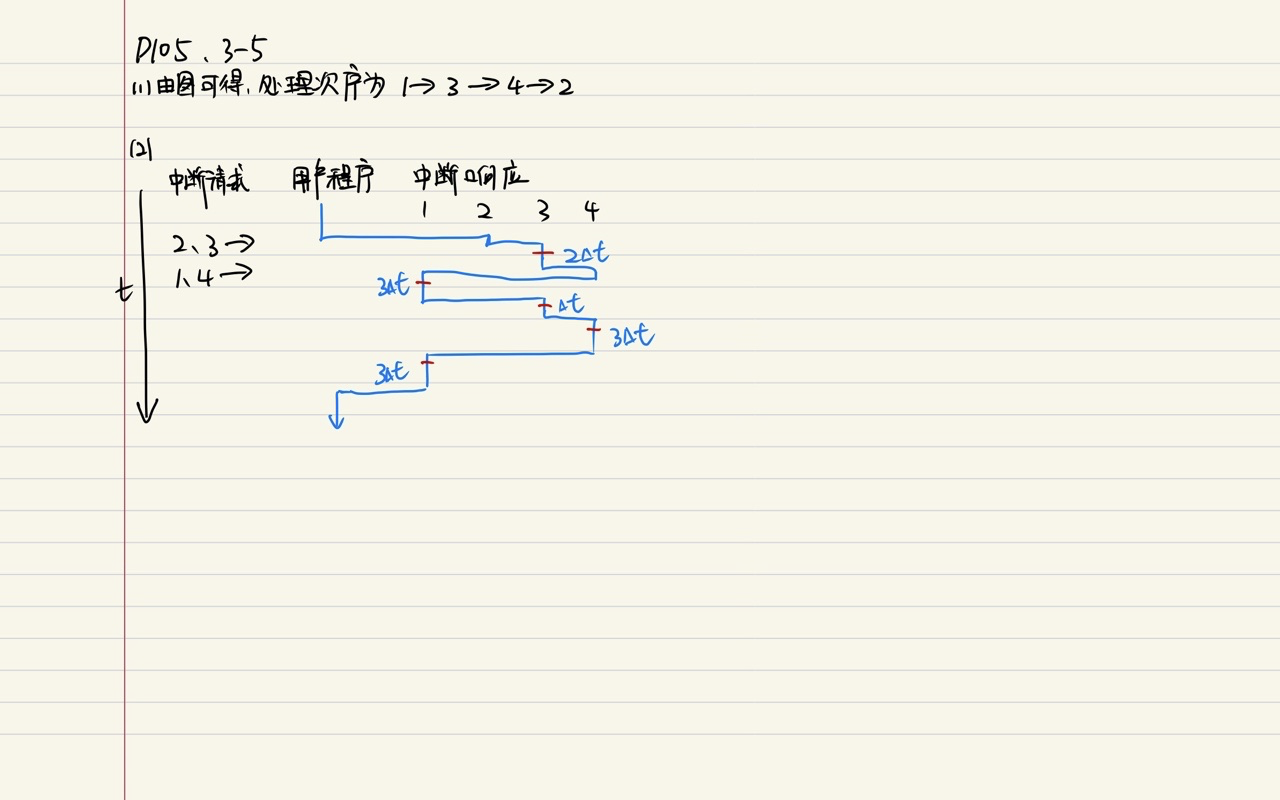 P105、3-5
(1) 由图可得，处理次序为 1→3→4→2
(2)
中断请求 用户程序 中断响应
1 2 3 4
2、3→
2Δt
1、4→
t
3Δt
Δt
3Δt
3Δt